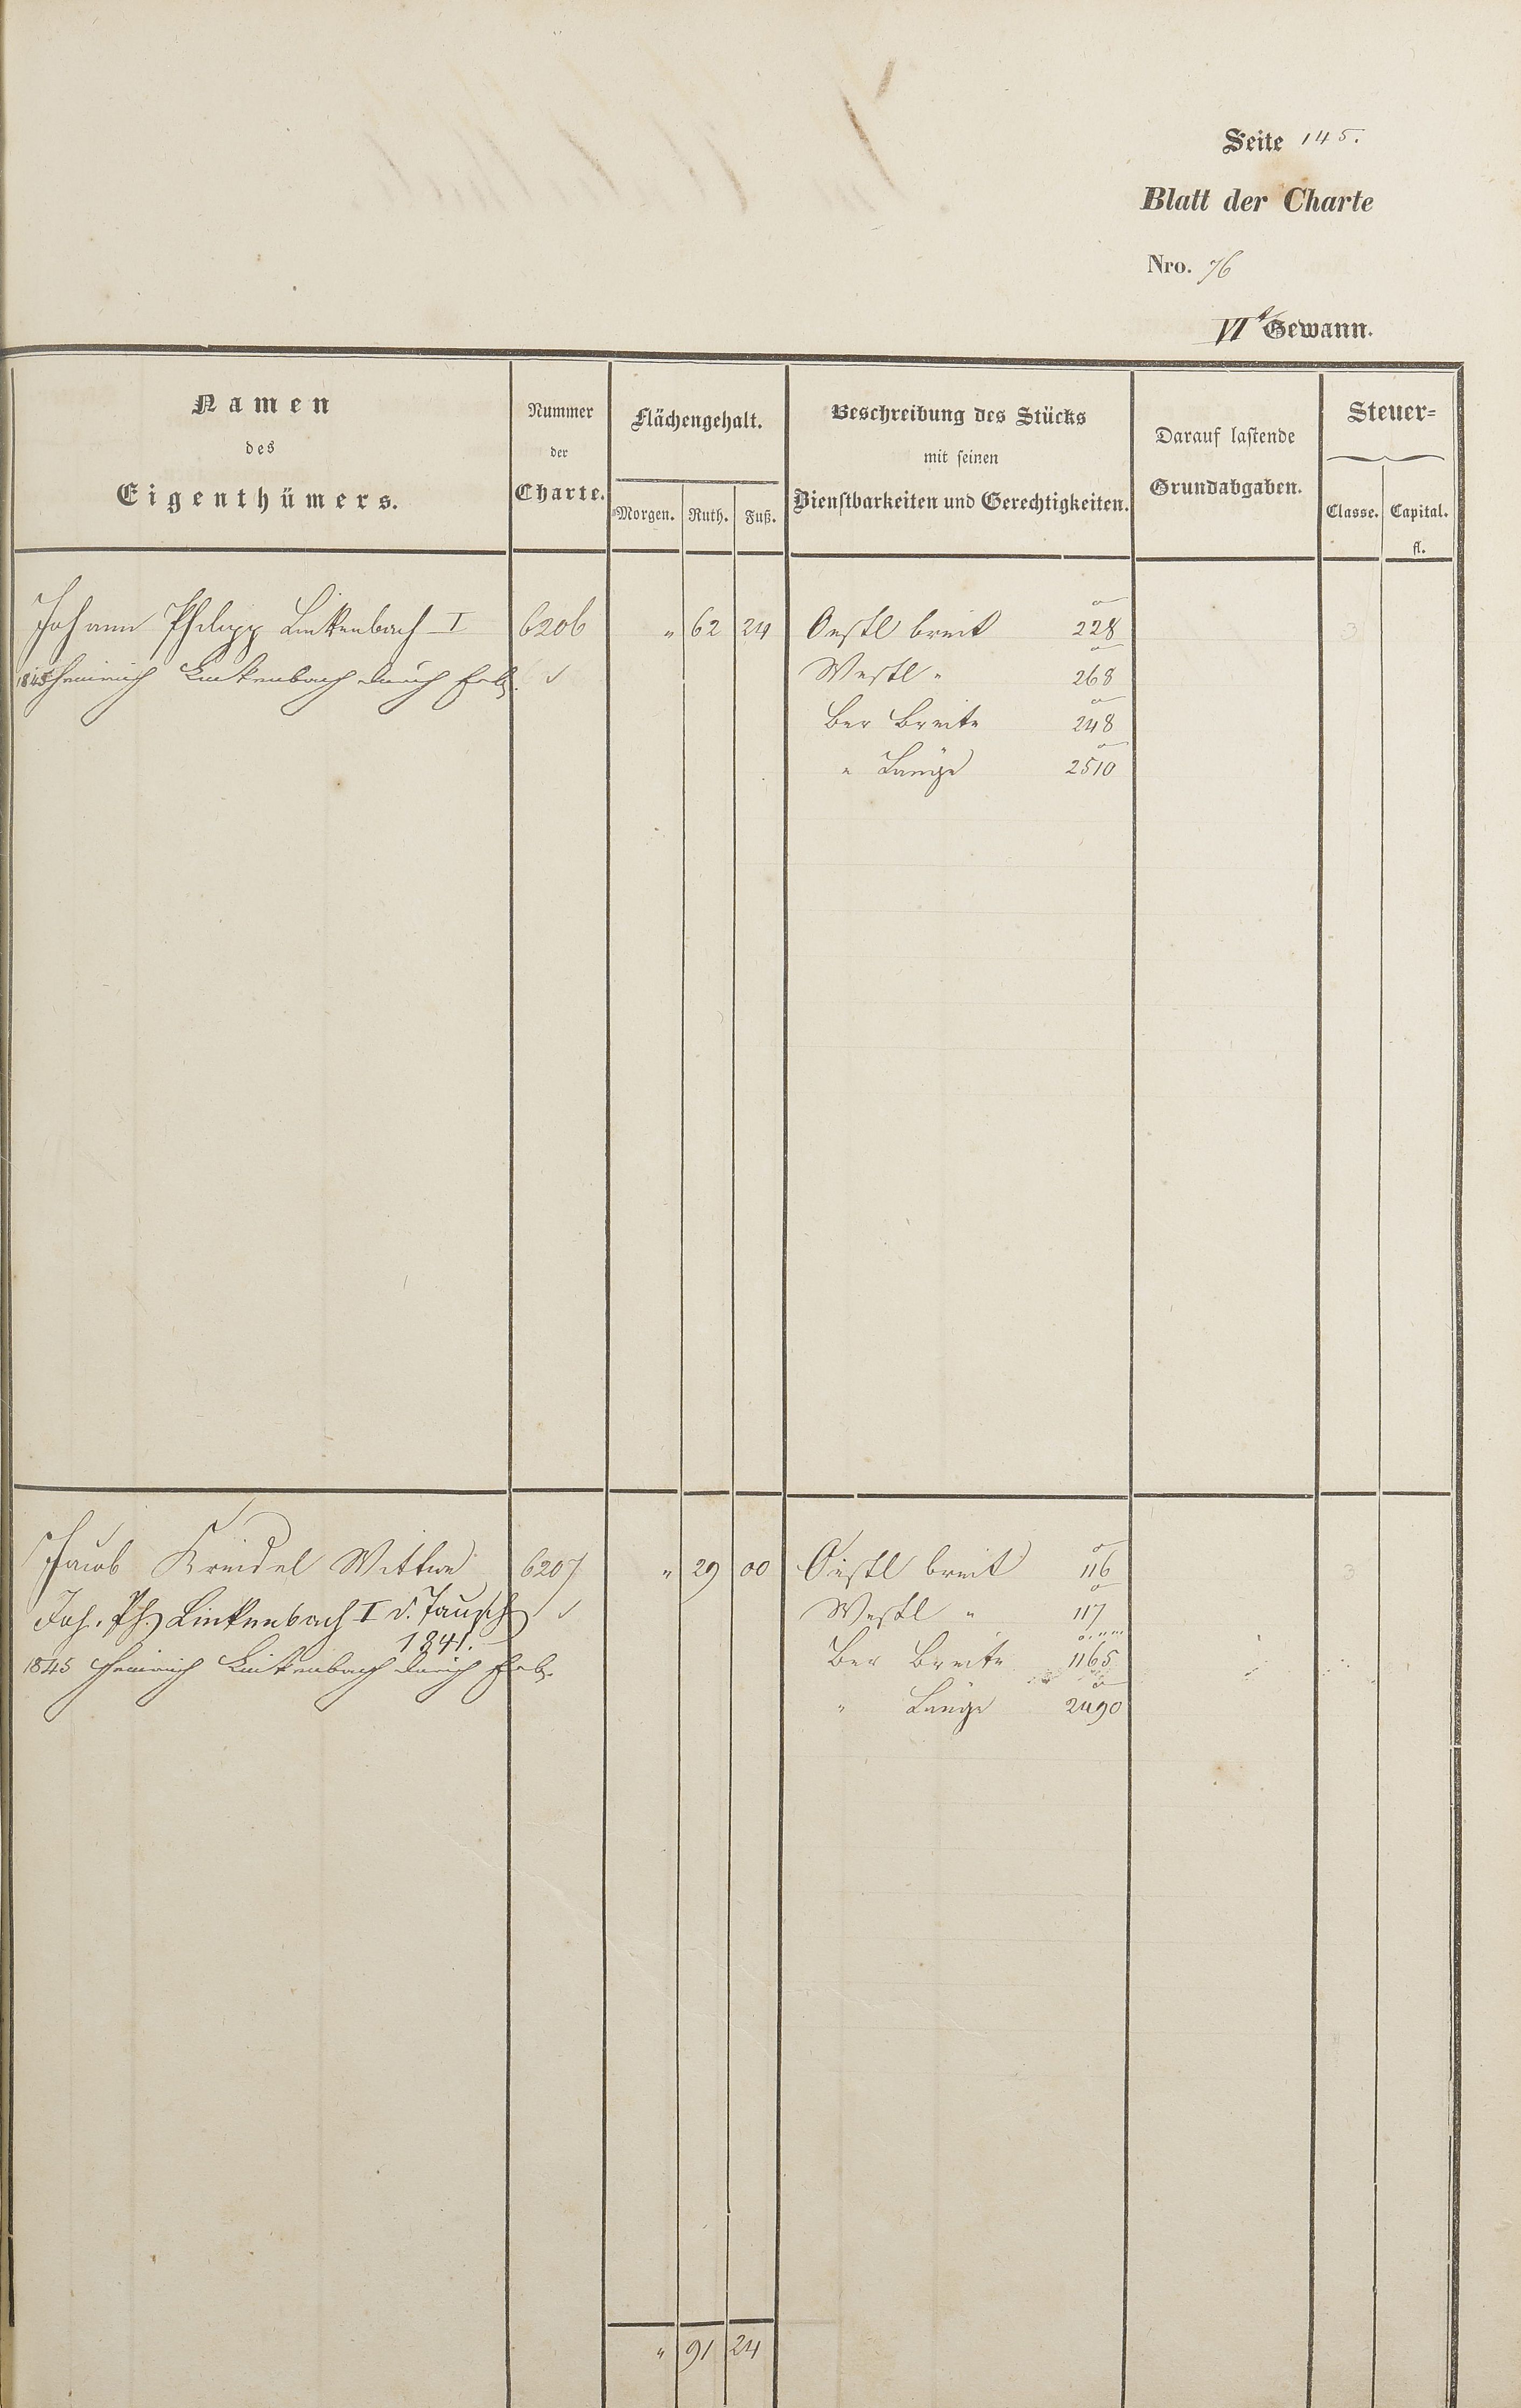 Seite 145.
Blatt der Charte
Nro. 76
VIte Gewann.
Namen des Eigenthümers.
Nummer der Charte.
Flächengehalt.
Morgen. Ruth. Fuß.
Beschreibung des Stücks mit seinen Dienstbarkeiten und Gerechtigkeiten.
Darauf lastende Grundabgaben.
Steuer=
Classe. Capital. fl.
Johann Philipp Linkenbach I 6206 " 62 24 Oestl breit 228 3
1845 Heinrich Linkenbach durch Erb. Westl " 268
Ber Breite 248
" Länge 2510
Jacob Kreidel Wittwe 6207 " 29 00 Oestl breit 116 3
Joh. Ph. Linkenbach I d. Tausch Westl " 117
1841.
1845 Heinrich Linkenbach durch Erb. Ber Breite 1165
" Länge 2490
" 91 24